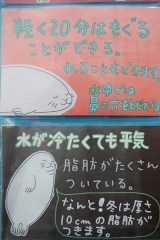 軽く20分はもぐる
ことができる。
ねることもできます。
水中では
鼻の穴をとじから
水が冷たくても平気
脂肪がたくさん
ついている。
なんと!冬は厚さ
10cmの脂肪が
つきます。